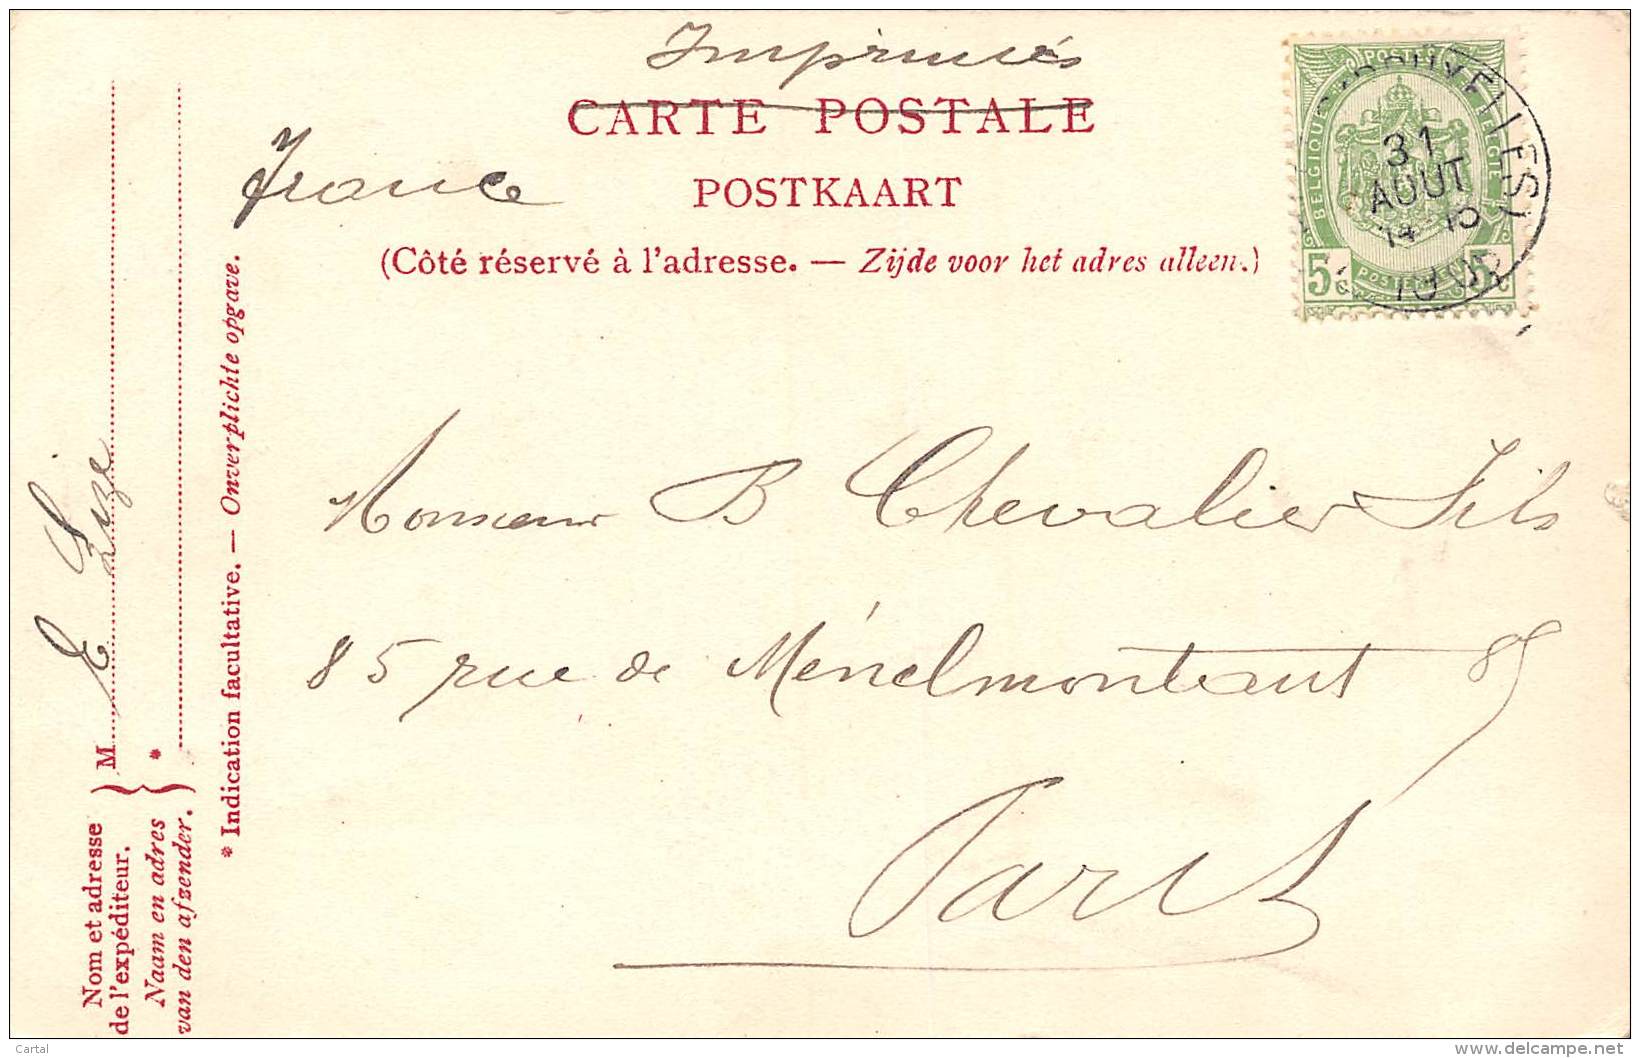 Imprimés
CARTE POSTALE
France
POSTKAART
(Côté réservé à l'adresse. — Zijde voor het adres alleen.)
POSTES
BELGIQUE
BELGIË
5c
5c
31
AOUT
Monsieur B Chevalier Fils
85 rue de Ménilmontant 85
Paris
Nom et adresse
de l'expéditeur.
Naam en adres
van den afzender.
M E Size
*
* Indication facultative. — Onverplichte opgave.
Cartal
www.delcampe.net